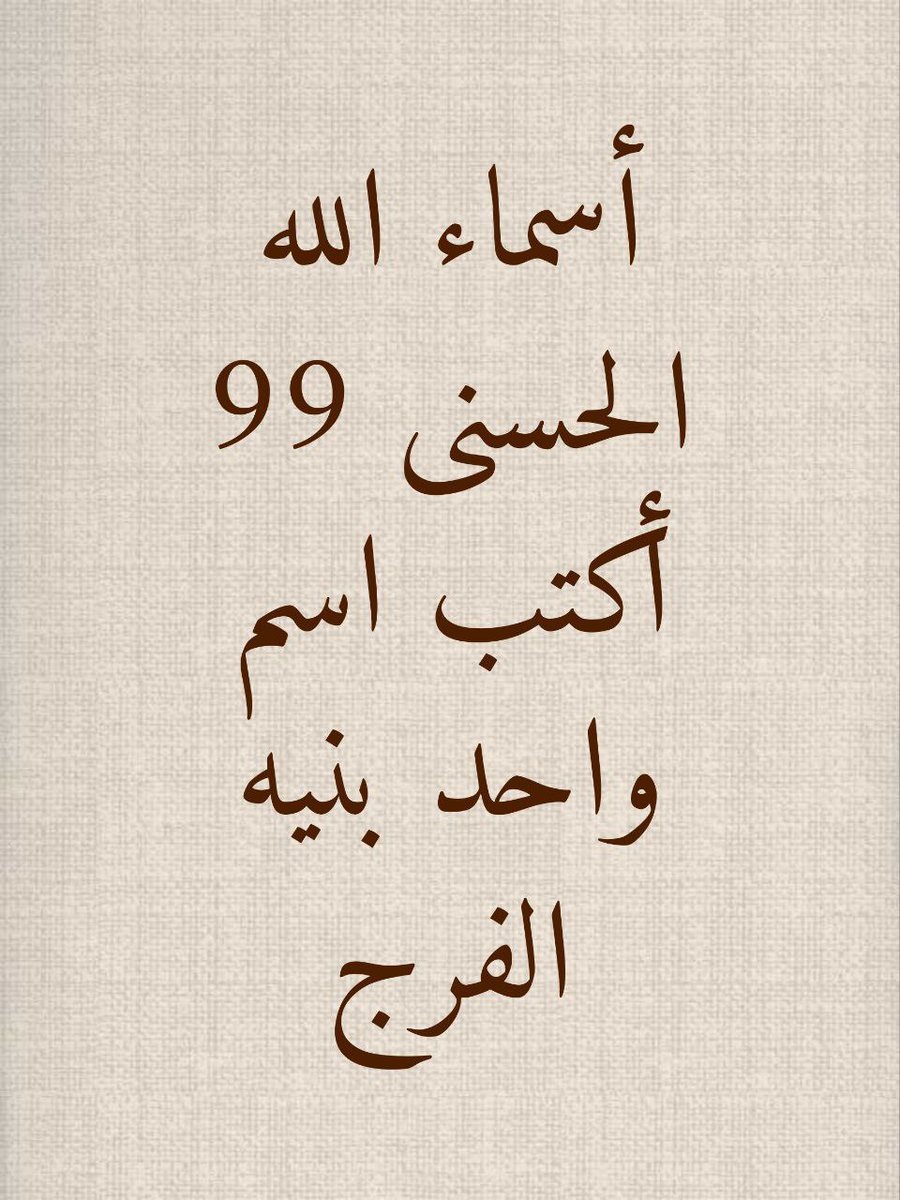 أسماء الله
الحسنى 99
أكتب اسم
واحد بنيه
الفرج